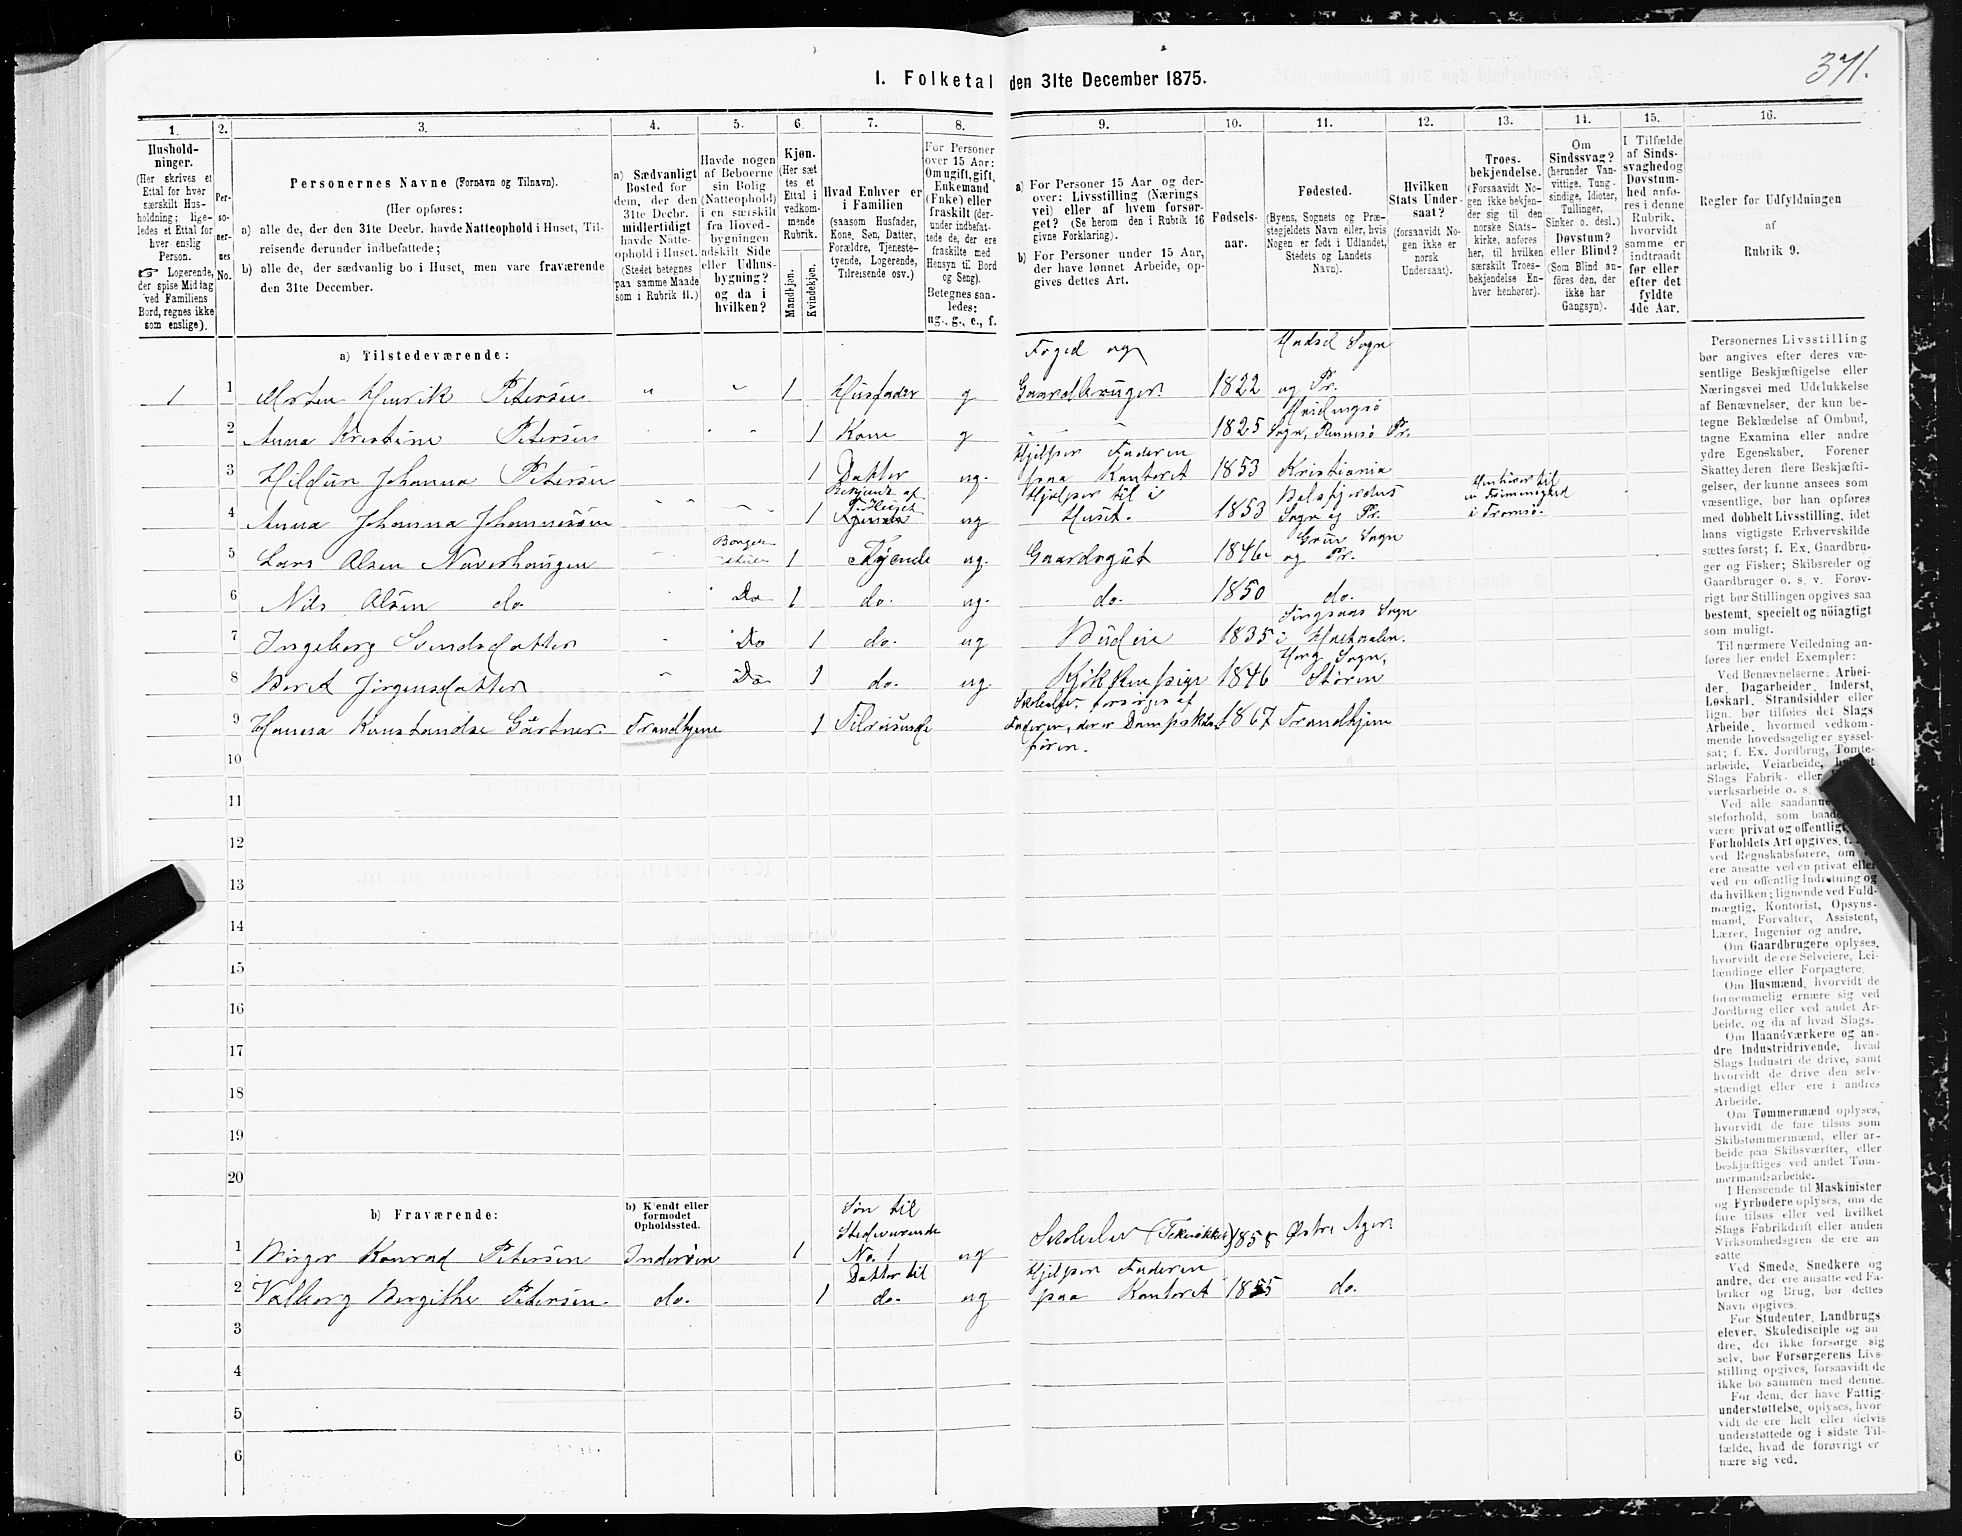 371.
I. Folketal den 31te December 1875.
1. 2. 3. 4. 5. 6. 7. 8. 9. 10. 11. 12. 13. 14. 15. 16.
Hushold-
ninger.
(Her skrives et
Ettal for hver
særskilt Hus-
holdning; lige-
ledes et Ettal for
hver enslig
Person.
☞ Logerende,
der spise Middag
ved Familiens
Bord, regnes ikke
som enslige).
Per-
so-
ner-
nes
No.
Personernes Navne (Fornavn og Tilnavn).
(Her opføres:
a) alle de, der den 31te Decbr. havde Natteophold i Huset, Til-
reisende derunder indbefattede;
b) alle de, der sædvanlig bo i Huset, men vare fraværende
den 31te December.
a) Sædvanligt
Bosted for
dem, der den
31te Decbr.
midlertidigt
havde Natte-
ophold i Huset.
(Stedet betegnes
paa samme Maade
som i Rubrik 11.)
Havde nogen
af Beboerne
sin Bolig
(Natteophold)
i en særskilt
fra Hoved-
bygningen
adskilt Side
eller Udhus-
bygning?
og da i
hvilken?
Kjøn.
(Her sæt
tes et
Ettal i
vedkom-
mende
Rubrik.
Mandkjøn.
Kvindekjøn.
Hvad Enhver er
i Familien
(saasom Husfader,
Kone, Søn, Datter,
Forældre, Tjeneste-
tyende, Logerende,
Tilreisende osv.)
For Personer
over 15 Aar:
Om ugift, gift,
Enkemand
(Enke) eller
fraskilt (der-
under indbefat-
tede de, der ere
fraskilte med
Hensyn til Bord
og Seng).
Betegnes saa-
ledes:
ug., g., e., f.
a) For Personer 15 Aar og der-
over: Livsstilling (Nærings
vei) eller af hvem forsør-
get? (Se herom den i Rubrik 16
givne Forklaring).
b) For Personer under 15 Aar,
der have lønnet Arbeide, op-
gives dettes Art.
Fødsels-
aar.
Fødested.
(Byens, Sognets og Præ-
stegjeldets Navn eller, hvis
Nogen er født i Udlandet,
Stedets og Landets
Navn).
Hvilken
Stats Under-
saat?
(forsaavidt No-
gen ikke er
norsk
Undersaat).
Troes-
bekjendelse.
(Forsaavidt No-
gen ikke bekjen-
der sig til den
norske Stats-
kirke, anføres
her, til hvilken
særskilt Troes-
bekjendelse En-
hver henhører).
Om
Sindssvag?
(herunder Van-
vittige, Tung-
sindige, Idioter,
Tullinger,
Sinker o. desl.)
Døvstum?
eller Blind?
(Som Blind an-
føres den, der
ikke har
Gangsyn).
I Tilfælde
af Sinds-
svaghed og
Døvstum-
hed anfø-
res i denne
Rubrik,
hvorvidt
samme er
indtraadt
før eller
efter det
fyldte
4de Aar.
Regler for Udfyldningen
af
Rubrik 9.
a) Tilstedeværende:
1 1 Morten Henrik Petersen " " 1 Husfader g Foged og Gaardbruger 1822 Hadsel Sogn og Pr.
2 Anna Kristine Petersen 1 Kone g 1825 Hvidingsø Sogn, Rennesø Pr.
3 Hildur Johanna Petersen 1 Datter ug. Hjelper Faderen paa Kontoret 1853 Kristiania
4 Anna Johanna Johannesen 1 ug Hjelper til i Huset. 1853 Balsfjordens Sogn og Pr. Henhører til en Frimenighed i Tromsø.
5 Lars Olsen Naverhaugen 1 Tyende ug. Gaardsgut 1846 Sogn og Pr.
6 Nils Olsen do. Do 1 do. ug. do. 1850 do.
7 Ingeborg Svendsdatter Do 1 do. ug Budeie 1835 Singsaas Sogn i Holtaalen.
8 Berit Jørgensdatter Do 1 do. ug. Kjøkkenpige 1846 Horg Sogn, Støren
9 Hanna Konstandse Gärtner Trondhjem 1 Tilreisende Skoleelev, forsørges af Faderen, der er Dampskibsfører. 1867 Trondhjem
10
11
12
13
14
15
16
17
18
19
20
b) Fraværende:
b) Kjendt eller
formodet
Opholdssted.
1 Birger Konrad Petersen Inderøen 1 Søn til Stedeværende No. 1 ug Skoleelev (Tekniker) 1858 Østre Aker
2 Valborg Bergithe Petersen do. 1 Datter til do. ug Hjelper Faderen paa Kontoret 1855 do.
3
4
5
6
Personernes Livsstilling
bør angives efter deres væ-
sentlige Beskjæftigelse eller
Næringsvei med Udelukkelse
af Benævnelser, der kun be-
tegne Beklædelse af Ombud,
tagne Examina eller andre
ydre Egenskaber. Forener
Skatteyderen flere Beskjæfti-
gelser, der kunne ansees som
væsentlige, bør han opføres
med dobbelt Livsstilling, idet
hans vigtigste Erhvervskilde
sættes først; f. Ex. Gaardbru-
ger og Fisker; Skibsreder og
Gaardbruger o. s. v. Forøv-
rigt bør Stillingen opgives saa
bestemt, specielt og nöiagtigt
som muligt.
Til nærmere Veiledning an-
føres her endel Exempler:
Ved Benævnelserne: Arbei-
der, Dagarbeider, Inderst,
Løskarl, Strandsidder eller
lign. bør tilføies det Slags
Arbeide, hvormed vedkom-
mende hovedsagelig er syssel-
sat; f. Ex. Jordbrug, Tomte-
arbeide, Veiarbeide,
Slags Fabrik- eller
værksarbeide o. s.
Ved alle saadanne
steforhold, som baade
være privat og offentligt,
Forholdets Art opgives, f.
ved Regnskabsførere, om
ere ansatte ved en privat eller
ved en offentlig Indretning og
da hvilken; lignende ved Fuld-
mægtig, Kontorist, Opsyns-
mand, Forvalter, Assistent,
Lærer, Ingeniør og andre.
Om Gaardbrugere oplyses,
hvorvidt de ere Selveiere, Lei-
lændinge eller Forpagtere.
Om Husmænd, hvorvidt de
fornemmelig ernære sig ved
Jordbrug eller ved andet Ar-
beide, og da af hvad Slags.
Om Haandværkere og an-
dre Industridrivende, hvad
Slags Industri de drive, samt
hvorvidt de drive den selv-
stændigt eller ere i andres
Arbeide.
Om Tømmermænd oplyses,
hvorvidt de fare tilsøs som
Skibstømmermænd, eller ar-
beide paa Skibsværfter, eller
beskjæftiges ved andet Tøm-
mermandsarbeide.
I Henseende til Maskinister
og Fyrbødere oplyses, om de
fare tilsøs eller ved hvilket
Slags Fabrikdrift eller anden
Virksomhedsgren de ere an-
satte.
Ved Smede, Snedkere og
andre, der ere ansatte ved Fa-
briker og Brug, bør dettes
Navn opgives.
For Studenter, Landbrugs-
elever, Skoledisciple og an-
dre, der ikke forsørge sig
selv, bør Forsørgerens Livs-
stilling opgives, forsaavidt de
ikke bo sammen med denne.
For dem, der have Fattig-
understøttelse, oplyses, hvor-
vidt de ere helt eller delvis
understøttede og i sidste Til-
fælde, hvad de forøvrigt er
nære sig ved.